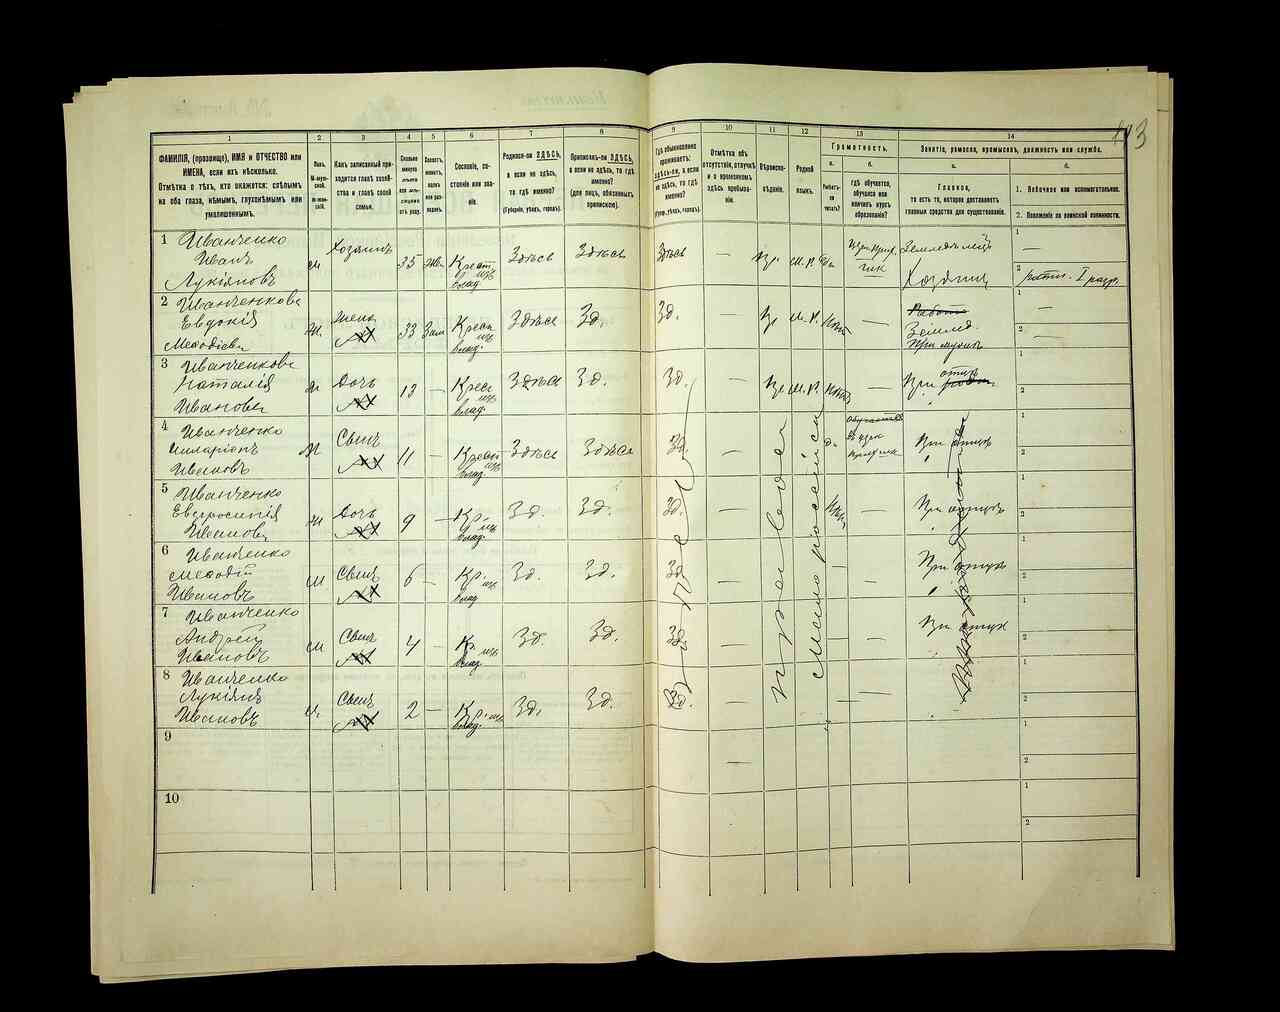 113
1 2 3 4 5 6 7 8 9 10 11 12 13 14
ФАМИЛІЯ, (прозвище), ИМЯ и ОТЧЕСТВО или
ИМЕНА, если ихъ нѣсколько.
Отмѣтка о тѣхъ, кто окажется: слѣпымъ
на оба глаза, нѣмымъ, глухонѣмымъ или
умалишеннымъ.
Полъ.
М-мужской.
Ж-женскій.
Какъ записанный при-
ходится главѣ хозяй-
ства и главѣ своей
семьи.
Сколько
минуло
лѣтъ
или мѣ-
сяцевъ
отъ роду.
Холостъ,
женатъ,
вдовъ
или раз-
веденъ.
Сословіе, со-
стояніе или зва-
ніе.
Родился-ли ЗДѢСЬ,
а если не здѣсь,
то гдѣ именно?
(Губернія, уѣздъ, городъ).
Приписанъ-ли ЗДѢСЬ,
а если не здѣсь, то гдѣ
именно?
(для лицъ, обязанныхъ
припиской).
Гдѣ обыкновенно
проживаетъ:
здѣсь-ли, а если
не здѣсь, то гдѣ
именно?
(Губер., уѣздъ, городъ).
Отмѣтка объ
отсутствіи, отлучкѣ
и о временномъ
здѣсь пребыва-
ніи.
Вѣроиспо-
вѣданіе.
Родной
языкъ.
Грамотность.
а.
Умѣетъ-
ли
читать?
б.
гдѣ обучается,
обучался или
кончилъ курсъ
образованія?
Занятіе, ремесло, промыселъ, должность или служба.
а.
Главное,
то есть то, которое доставляетъ
главныя средства для существованія.
б.
1. Побочное или вспомогательное.
2. Положеніе по воинской повинности.
1 Иванченко
Иванъ
Лукіяновъ
м
Хозяинъ
35
Жен.
Крест.
изъ
влад.
Здѣсь
Здѣсь
Здѣсь
—
м.р.
да
Земледѣлецъ
Хозяинъ
1 —
2 ратн. I разр.
2 Иванченкова
Евдокія
Меѳодіева
ж
жена
33
Зам
Крест
изъ
влад.
Здѣсь
Зд.
Зд.
—
м.р.
—
Землед.
При мужѣ
1 —
2 —
3 Иванченкова
Наталія
Иванова
ж
дочь
13
—
Крес
изъ
влад.
Здѣсь
Зд.
Зд.
—
м.р.
—
При отцѣ
1
2
4 Иванченко
Илларіонъ
Ивановъ
м
Сынъ
11
—
Крест
изъ
влад.
Здѣсь
Здѣсь
Зд.
—
При отцѣ
1
2
5 Иванченко
Евфросинія
Иванова
ж
дочь
9
—
Кр.
изъ
влад.
Зд.
Зд.
Зд.
—
—
При отцѣ
1
2
6 Иванченко
Меѳодій
Ивановъ
м
Сынъ
6
—
Кр.
изъ
влад
Зд.
Зд.
Зд.
—
—
—
При отцѣ
1
2
7 Иванченко
Андрей
Ивановъ
м
Сынъ
4
—
Кр.
изъ
влад.
Зд.
Зд.
Зд.
—
—
—
При отцѣ
1
2
8 Иванченко
Лукіянъ
Ивановъ
м.
Сынъ
2
—
Кр.
изъ
влад.
Зд.
Зд.
Зд.
—
—
—
1
2
9
—
1
2
10
1
2